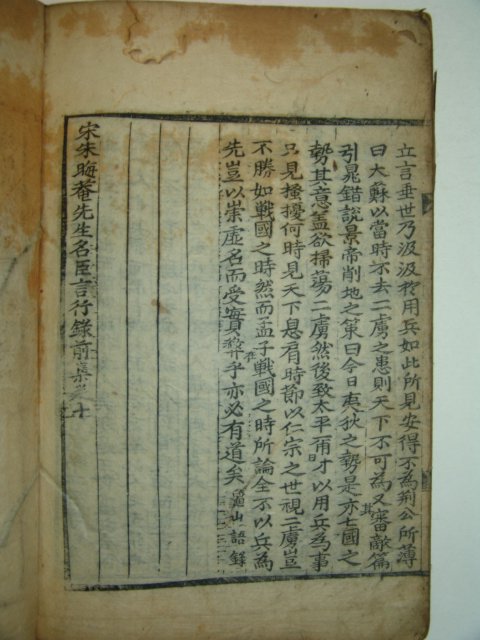 立言垂世乃汲汲於用兵如此所見安得不為荆公所薄
曰大蘇以當時不去二虜之患則天下不可為又審敵篇
引晁錯說景帝削地之策曰今日夷狄之勢是亦七國之
勢其意盖欲掃蕩二虜然後致太平爾才以用兵為事
只見搔擾何時見天下息肩時節以仁宗之世視二虜豈
不勝如戰國之時然而孟子在戰國之時所論全不以兵為
先豈以崇虛名而受實弊乎亦必有道矣 龜山語錄
宋朱晦菴先生名臣言行錄前集卷之十